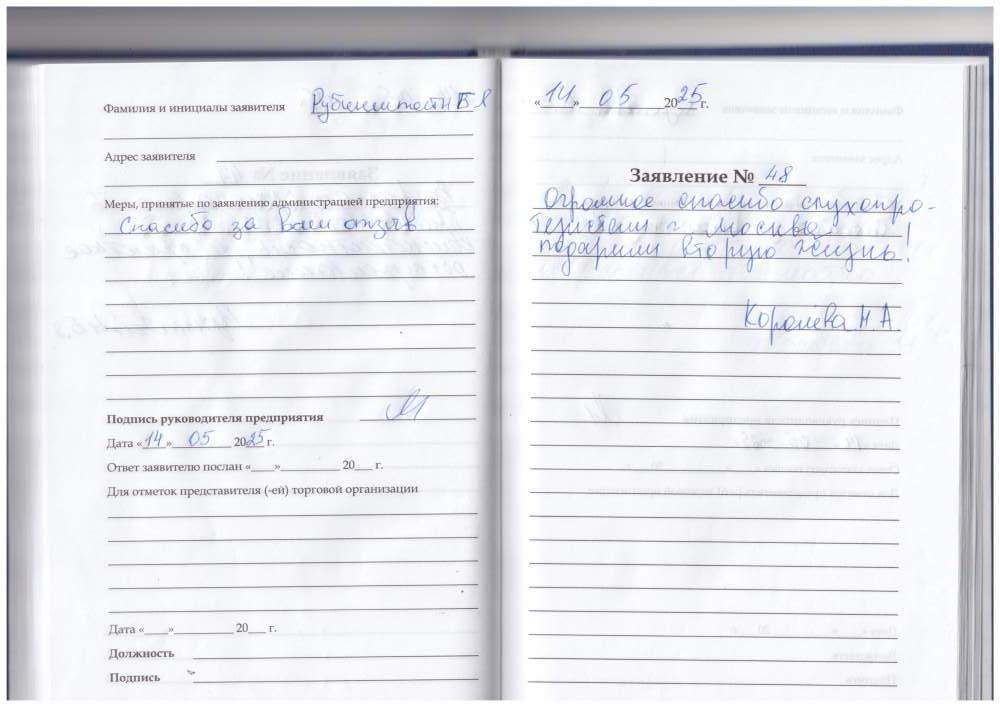 Фамилия и инициалы заявителя Рубинштейн Б Я
Адрес заявителя
Меры, принятые по заявлению администрацией предприятия:
Спасибо за Ваш отзыв
Подпись руководителя предприятия
Дата «14» 05 2025 г.
Ответ заявителю послан «___»__________ 20___ г.
Для отметок представителя (-ей) торговой организации
Дата «____»__________ 20___ г.
Должность
Подпись
«14» 05 2025 г.
Заявление № 48
Огромное спасибо слухопро-
тезистам г Москва
подарили вторую жизнь!
Королёва Н А